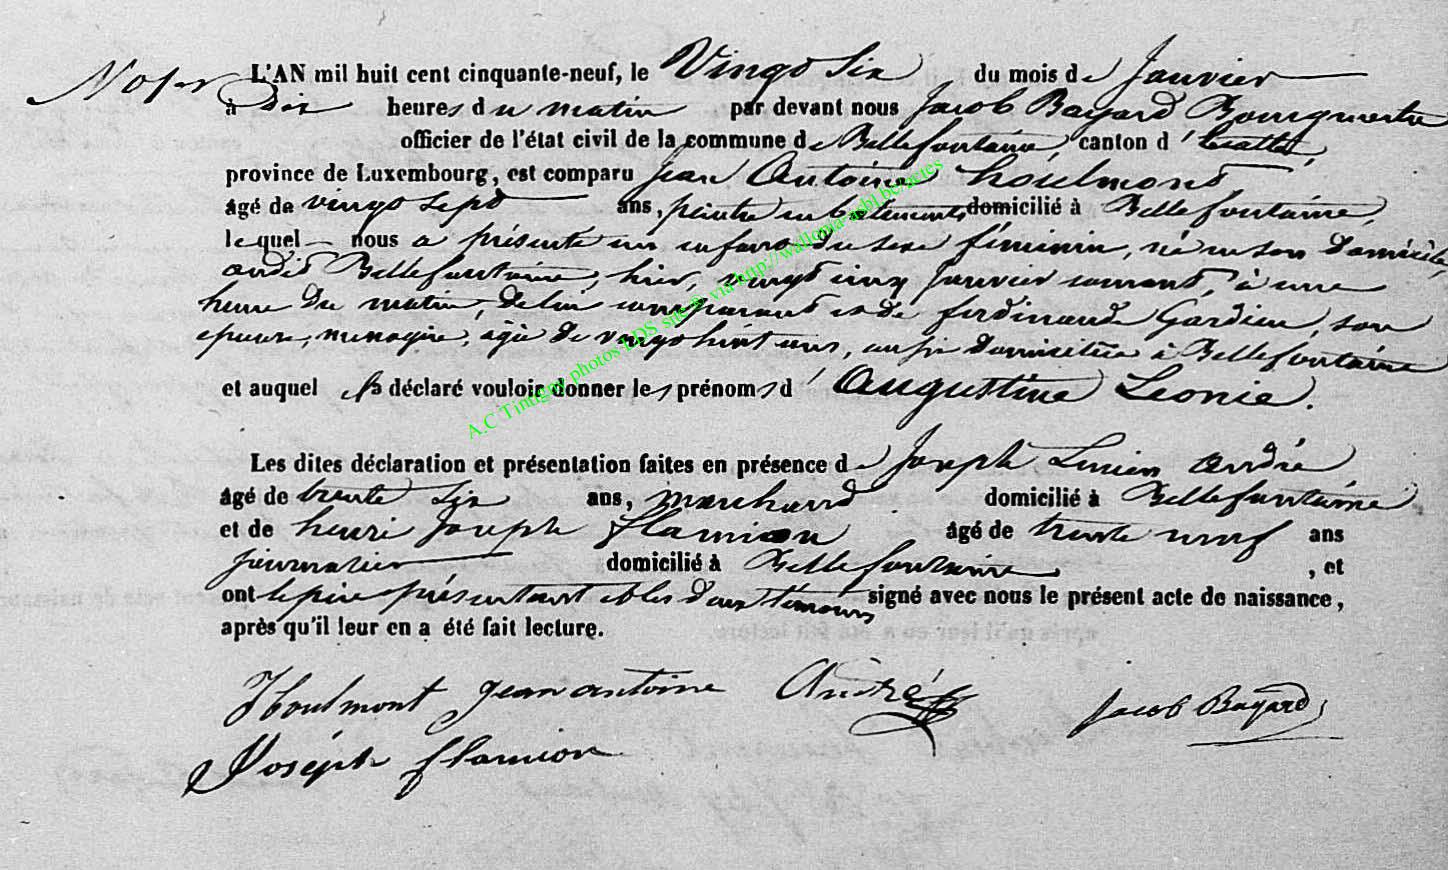 L'AN mil huit cent cinquante-neuf, le Vingt Six du mois de Janvier
à Dix heures du matin par devant nous Jacob Bayard Bourgmestre
officier de l'état civil de la commune de Bellefontaine, canton d'
province de Luxembourg, est comparu Jean Antoine houlmont,
âgé de vingt sept ans, peintre en batiments domicilié à Bellefontaine,
lequel nous a présenté un enfant du sexe féminin, né en son Domicile,
audit Bellefontaine, hier, vingt cinq Janvier courant, à une
heure Du matin, de lui comparant et de ferdinande Gardien, son
epouse, menagère, agée de vingt huit ans, aussi Domiciliée à Bellefontaine
et auquel il a déclaré vouloir donner les prénoms d'Augustine Leonie.
Les dites déclaration et présentation faites en présence de Joseph Lucien André
âgé de trente six ans, marchand domicilié à Bellefontaine
et de henri Joseph flamion âgé de trente neuf ans
journalier domicilié à Bellefontaine, et
ont le père présentant et les deux témoins signé avec nous le présent acte de naissance,
après qu'il leur en a été fait lecture.
Houlmont jean antoine André Jacob Bayard
Joséph flamion
A.C Tintigny photos LDS sne © via http://wallonia-asbl.be/actes